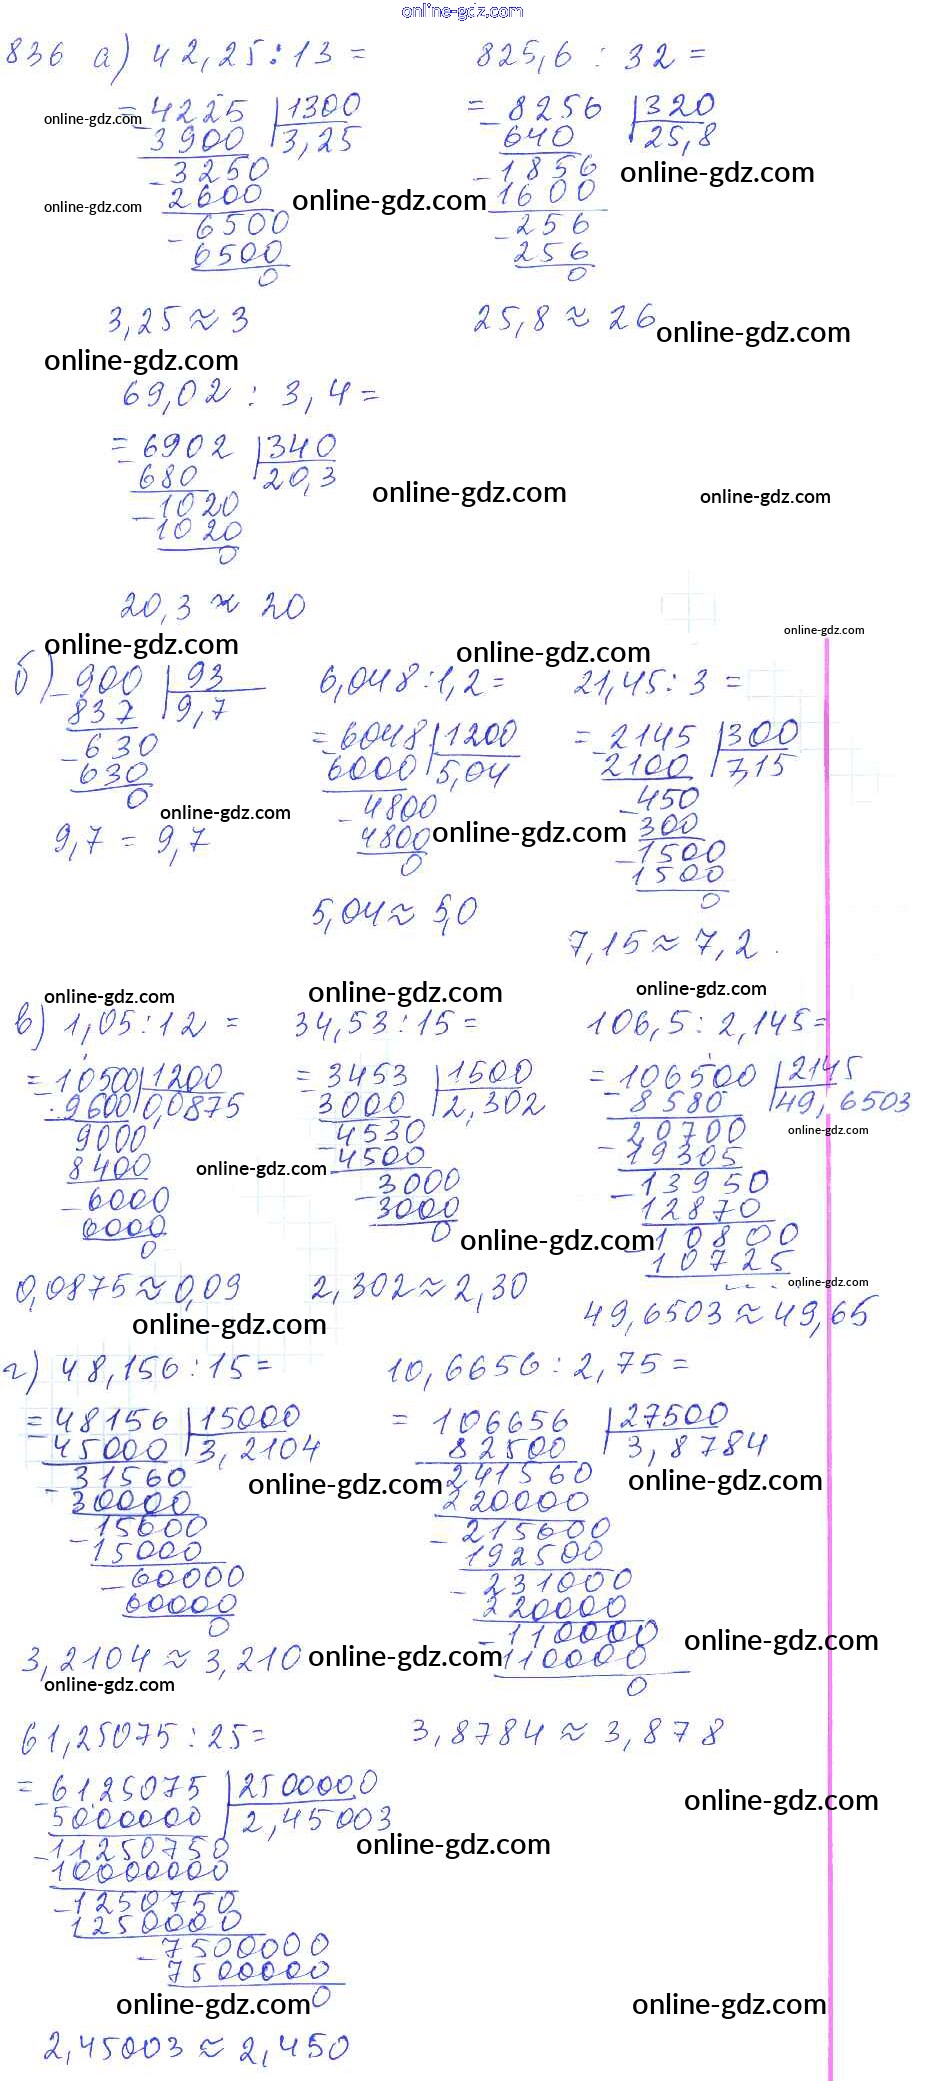 online-gdz.com
836 а) 42,25:13= 825,6 : 32=
= 4225 | 1300 = 8256 | 320
online-gdz.com
3900 3,25 640 25,8
3250 1856
online-gdz.com
2600 1600
online-gdz.com
online-gdz.com
6500 256
6500 256
0 0
3,25 ≈ 3 25,8 ≈ 26
online-gdz.com
online-gdz.com
69,02 : 3,4=
= 6902 | 340
680 20,3
online-gdz.com
online-gdz.com
1020
1020
0
20,3 ≈ 20
online-gdz.com
online-gdz.com
online-gdz.com
б) 900 | 93 6,048:1,2= 21,45:3=
837 9,7 = 6048 | 1200 = 2145 | 300
630 6000 5,04 2100 7,15
630 4800 450
0 4800 300
online-gdz.com
online-gdz.com
9,7 = 9,7 0 1500
1500
0
5,04 ≈ 5,0
7,15 ≈ 7,2.
online-gdz.com
online-gdz.com
online-gdz.com
в) 1,05:12= 34,53:15= 106,5:2,145=
= 10500 | 1200 = 3453 | 1500 = 106500 | 2145
9600 0,0875 3000 2,302 8580 49,6503
9000 4530 20700
online-gdz.com
8400 4500 19305
online-gdz.com
6000 3000 13950
6000 3000 12870
0 0 10800
online-gdz.com
10725
online-gdz.com
0,0875 ≈ 0,09 2,302 ≈ 2,30
49,6503 ≈ 49,65
online-gdz.com
г) 48,156:15= 10,6656:2,75=
= 48156 | 15000 = 106656 | 27500
45000 3,2104 82500 3,8784
31560 241560
online-gdz.com
online-gdz.com
30000 220000
15600 215600
15000 192500
60000 231000
60000 220000
0 110000
online-gdz.com
3,2104 ≈ 3,210 110000
online-gdz.com
online-gdz.com
0
61,25075:25= 3,8784 ≈ 3,878
= 6125075 | 2500000
online-gdz.com
5000000 2,45003
online-gdz.com
11250750
10000000
1250750
1250000
7500000
7500000
0
online-gdz.com
online-gdz.com
2,45003 ≈ 2,450